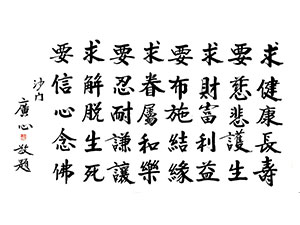 求健康長壽
要慈悲護生
求財富利益
要布施結緣
求眷屬和樂
要忍耐謙讓
求解脫生死
要信心念佛
沙門
廣心敬題